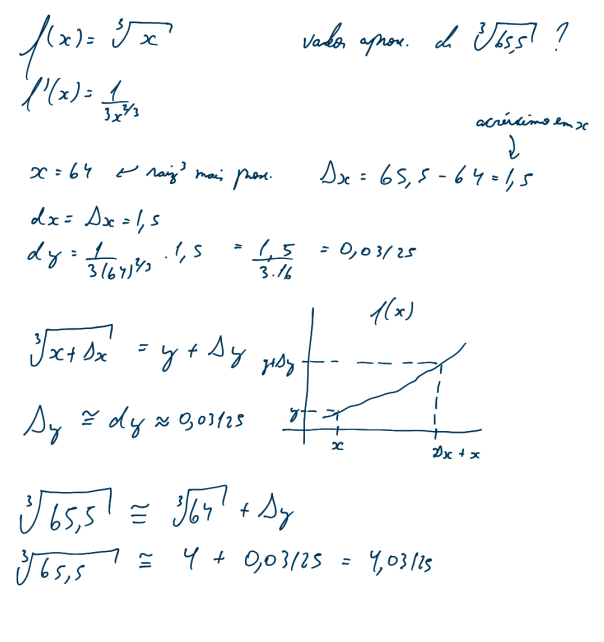 f(x) = ∛x valor aprox. de ∛65,5 ?
f'(x) = 1/(3x^(2/3))
acréscimo em x
↓
x = 64 ← raiz³ mais prox. Δx = 65,5 - 64 = 1,5
dx = Δx = 1,5
dy = 1/(3(64)^(2/3)) . 1,5 = 1,5/(3.16) = 0,03125
f(x)
∛(x+Δx) = y + Δy y+Δy
Δy ≅ dy ≈ 0,03125 y
x Δx + x
∛65,5 ≅ ∛64 + Δy
∛65,5 ≅ 4 + 0,03125 = 4,03125